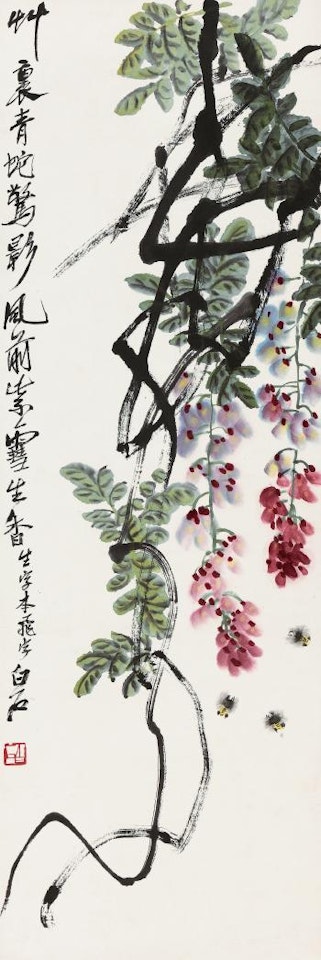 艸裏青蛇驚影風前紫雪生香生字本飛字白石